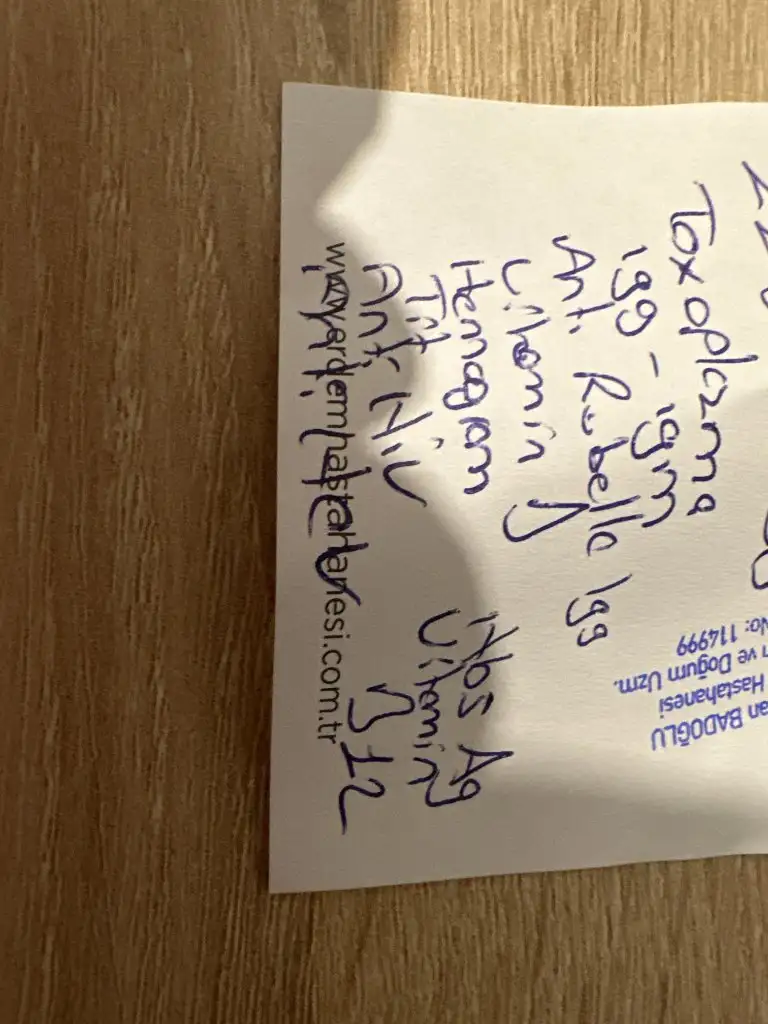 Toxoplazma
Igg - Igm
Anti Rubella Igg
Vitamin D
Hemogram
Tit
Anti Hiv
Anti Hcv
Hbs Ag
Vitamin
B12
www.erdemhastahanesi.com.tr
an BADOĞLU
Hastahanesi
ve Doğum Uzm.
No: 114999